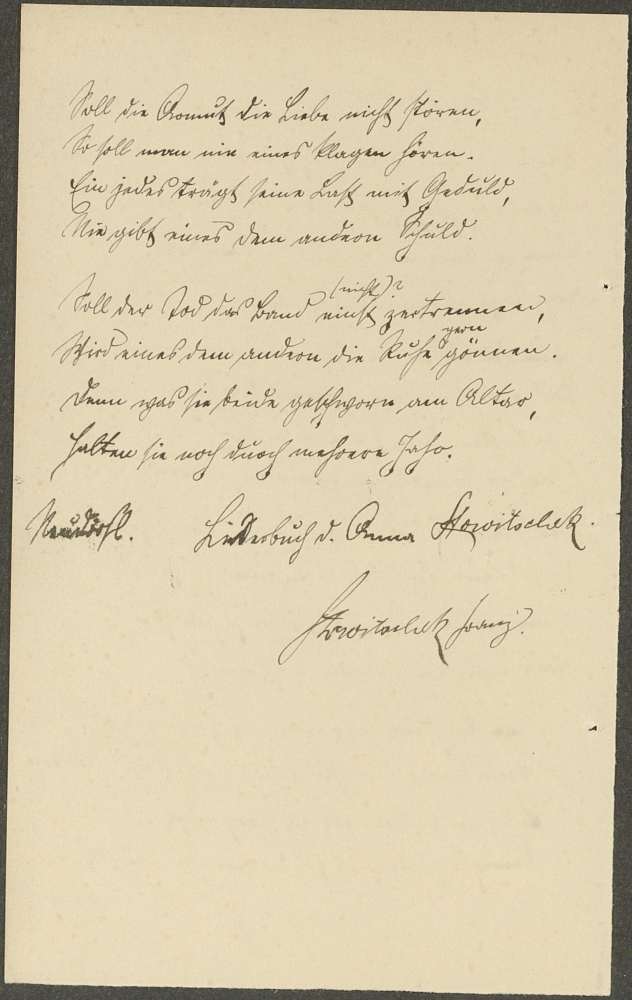 Soll die Armut die Liebe nicht stören,
So soll man nie eines klagen hören.
Ein jedes trägt seine Last mit Geduld,
Nie gibt eines dem andern Schuld.
Soll der Tod das Band einst (nicht)? zertrennen,
Wird eines dem andern die Ruhe gern gönnen.
Denn was sie beide geschworn am Altar,
Halten sie noch durch mehrere Jahr.
Neudörfl. Liederbuch d. Anna Stowitschek.
Stowitschek Franz.